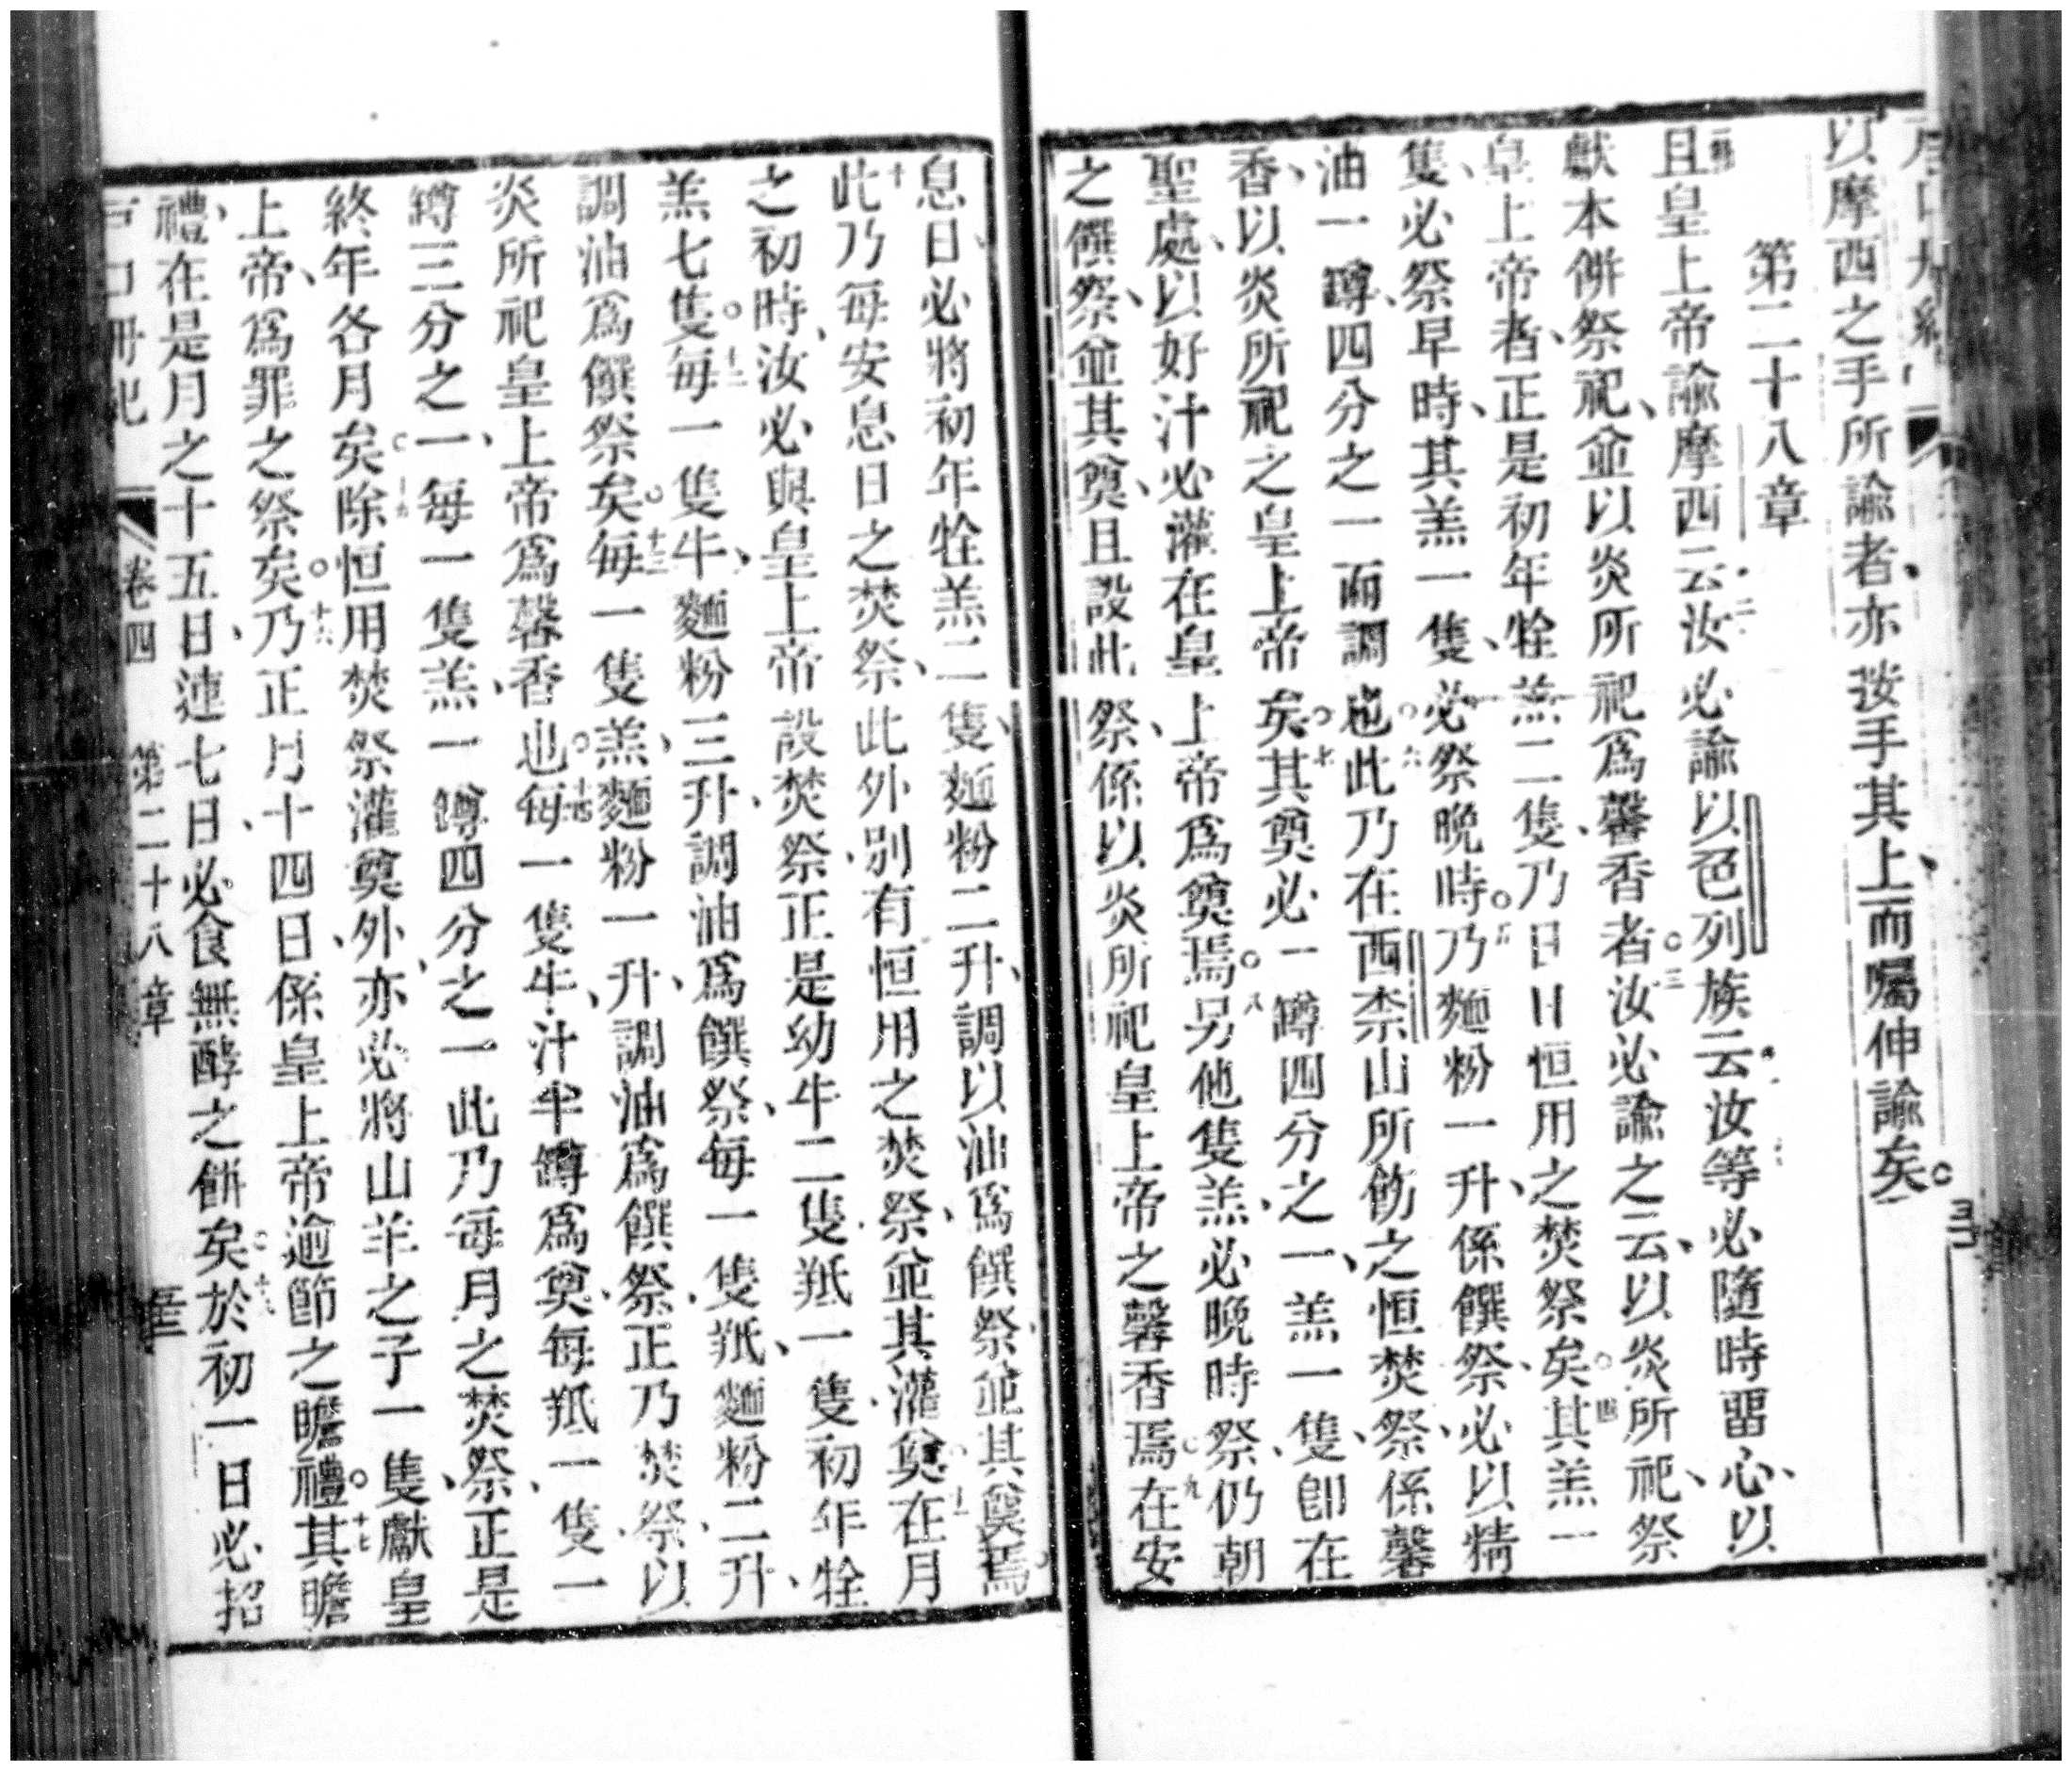 以摩西之手所諭者、亦按手其上、而囑伸諭矣。
第二十八章
且皇上帝諭摩西云、二汝必諭以色列族云、汝等必隨時留心、以
獻本餅祭祀、並以炎所祀爲馨香者。三汝必諭之云、以炎所祀、祭
皇上帝者、正是初年牷羔二隻、乃日日恒用之焚祭矣。四其羔一
隻、必祭早時、其羔一隻、必祭晚時。五乃麵粉一升、係饌祭、必以精
油一罇四分之一而調也。六此乃在西柰山所飭之恒焚祭、係馨
香、以炎所祀之皇上帝矣。七其奠必一罇四分之一、羔一隻、卽在
聖處、以好汁必灌在皇上帝爲奠焉。八另他隻羔、必晚時祭、仍朝
之饌祭、並其奠、且設此祭、係以炎所祀皇上帝之馨香焉。九在安
息日、必將初年牷羔二隻、麵粉二升、調以油爲饌祭、並其奠焉。
十此乃每安息日之焚祭、此外別有恒用之焚祭、並其灌奠。十一在月
之初時、汝必與皇上帝設焚祭、正是幼牛二隻、羝一隻、初年牷
羔七隻。十二每一隻牛、麵粉三升、調油爲饌祭、每一隻羝、麵粉二升、
調油爲饌祭矣。十三每一隻羔、麵粉一升、調油爲饌祭、正乃焚祭、以
炎所祀皇上帝爲馨香也。十四每一隻牛、汁半罇爲奠、每羝一隻一
罇三分之一、每一隻羔、一罇四分之一、此乃每月之焚祭、正是
終年各月矣。十五除恒用焚祭灌奠外、亦必將山羊之子一隻、獻皇
上帝、爲罪之祭矣。十六乃正月十四日、係皇上帝逾節之瞻禮。十七其瞻
禮、在是月之十五日、連七日、必食無酵之餅矣。十八於初一日必招
卷四 第二十八章